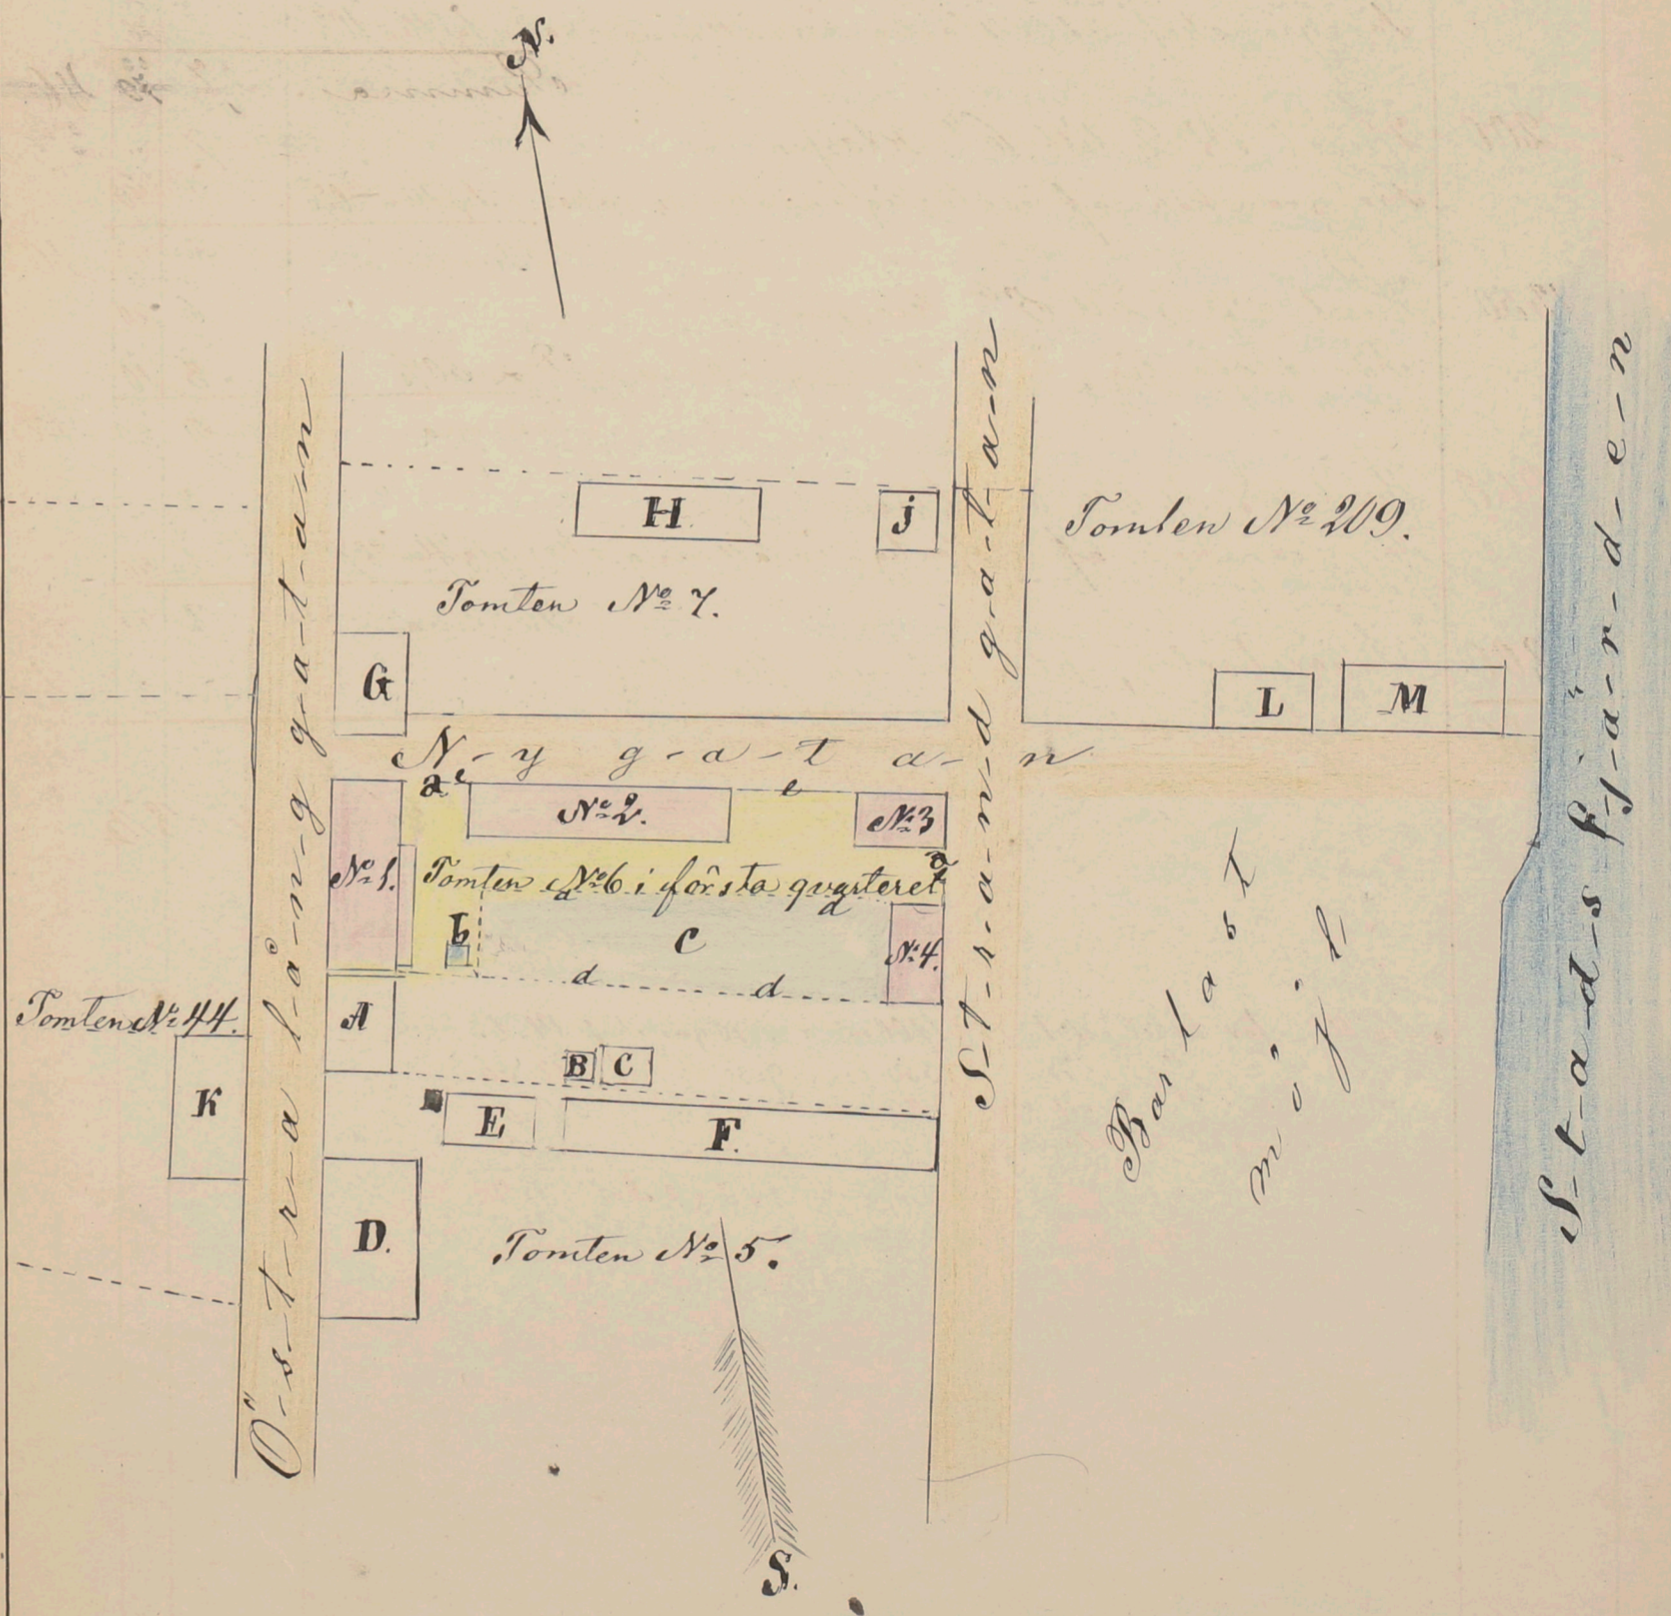 N.
Ö-s-t-r-a l-å-n-g g-a-t-a-n
S-t-r-a-n-d g-a-t-a-n
S-t-a-d-s f-j-ä-r-d-e-n
H
j
Tomten No 209.
Tomten No 7.
G
L
M
N-y g-a-t a-n
a
e
e
No 2.
No 3
No 1.
Tomten No 6 i första qvarteret
a
d
d
b
C
No 4.
d
d
Tomten No 44.
A
B
C
K
E
F.
D.
Tomten No 5.
Barlast
möjl
S.